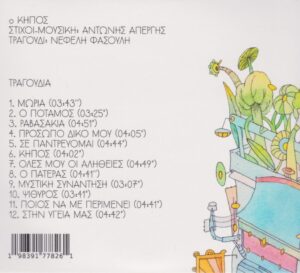 Ο ΚΗΠΟΣ
ΣΤΙΧΟΙ-ΜΟΥΣΙΚΗ: ΑΝΤΩΝΗΣ ΑΠΕΡΓΗΣ
ΤΡΑΓΟΥΔΙ: ΝΕΦΕΛΗ ΦΑΣΟΥΛΗ
ΤΡΑΓΟΥΔΙΑ
1. ΜΩΡΙΑ (03:43")
2. Ο ΠΟΤΑΜΟΣ (03:25")
3. ΡΑΒΑΣΑΚΙΑ (04:51")
4. ΠΡΟΣΩΠΟ ΔΙΚΟ ΜΟΥ (04:05")
5. ΣΕ ΠΑΝΤΡΕΥΟΜΑΙ (04:44")
6. ΚΗΠΟΣ (04:02")
7. ΟΛΕΣ ΜΟΥ ΟΙ ΑΛΗΘΕΙΕΣ (04:49")
8. Ο ΠΑΤΕΡΑΣ (04:41")
9. ΜΥΣΤΙΚΗ ΣΥΝΑΝΤΗΣΗ (03:07")
10. ΨΙΘΥΡΟΣ (03:41")
11. ΠΟΙΟΣ ΝΑ ΜΕ ΠΕΡΙΜΕΝΕΙ (04:41")
12. ΣΤΗΝ ΥΓΕΙΑ ΜΑΣ (04:42")
1 98391 77826 1